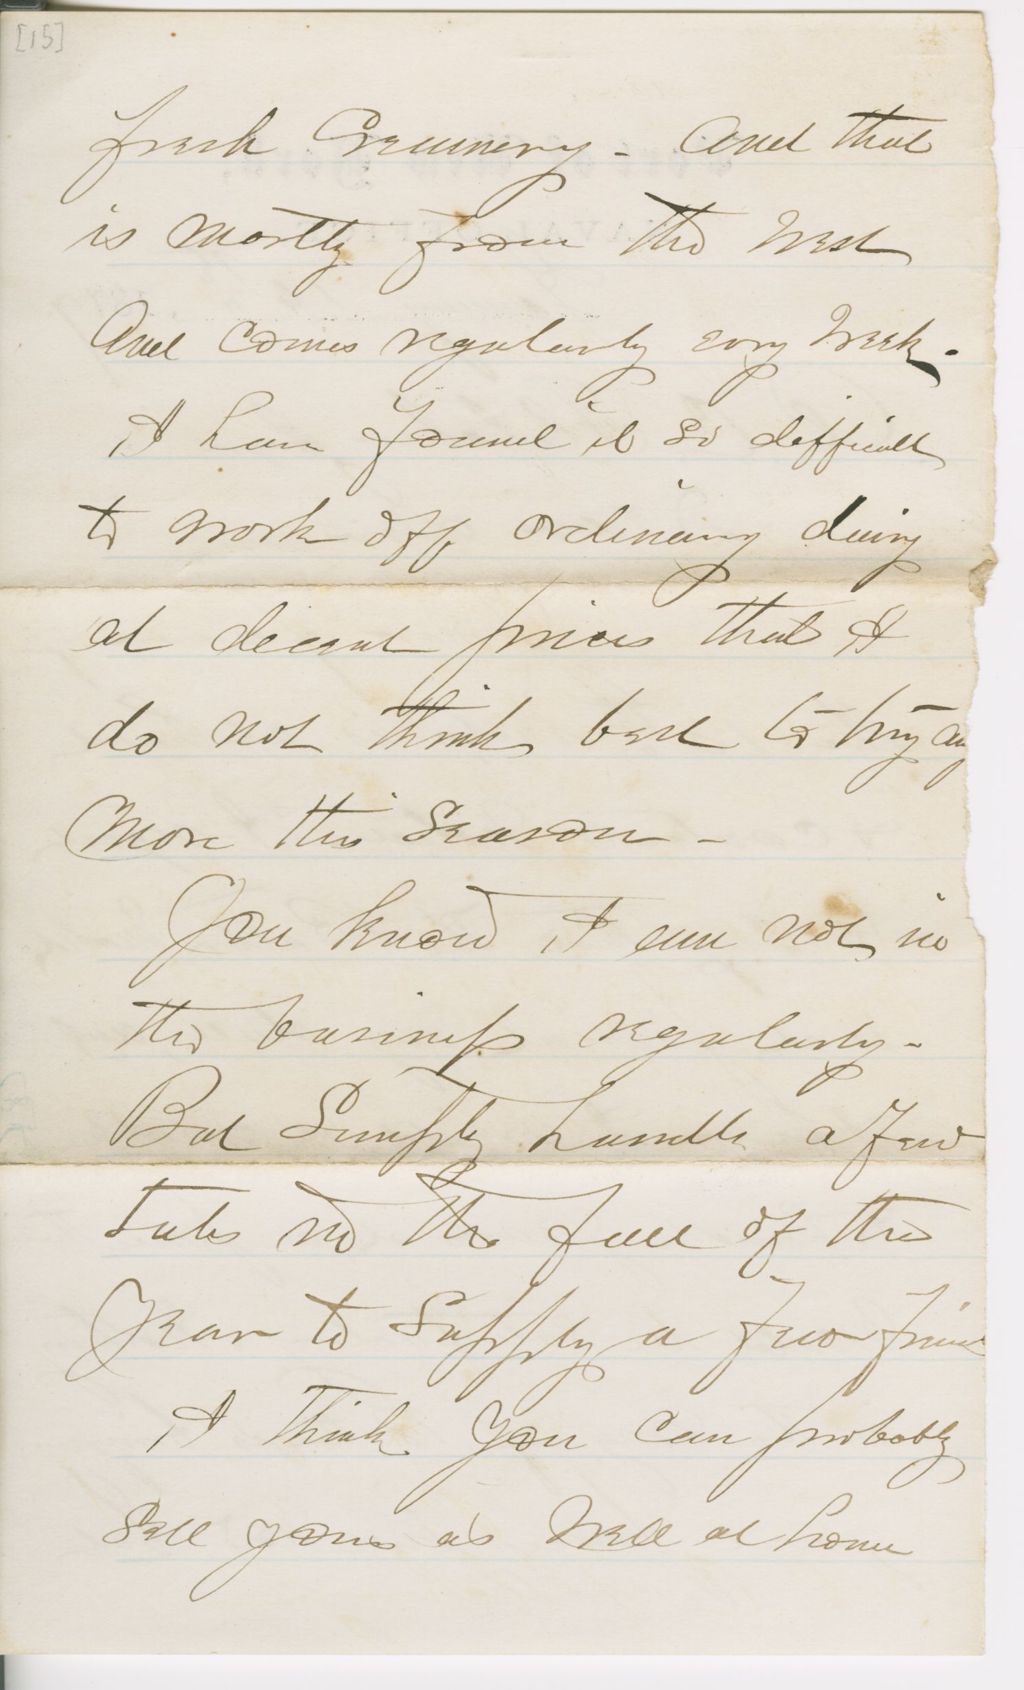 [15]
fresh Creamery - And that
is mostly from the West
And comes regularly evry Week.
I have found it so difficult
to work off ordinary dairy
at decent prices that I
do not think best to try any
More this Season -
You know I am not in
the business regularly -
But Simply handle a few
tubs in the fall of the
Year to Supply a few
I think you can probably
Sell yours as Well at home